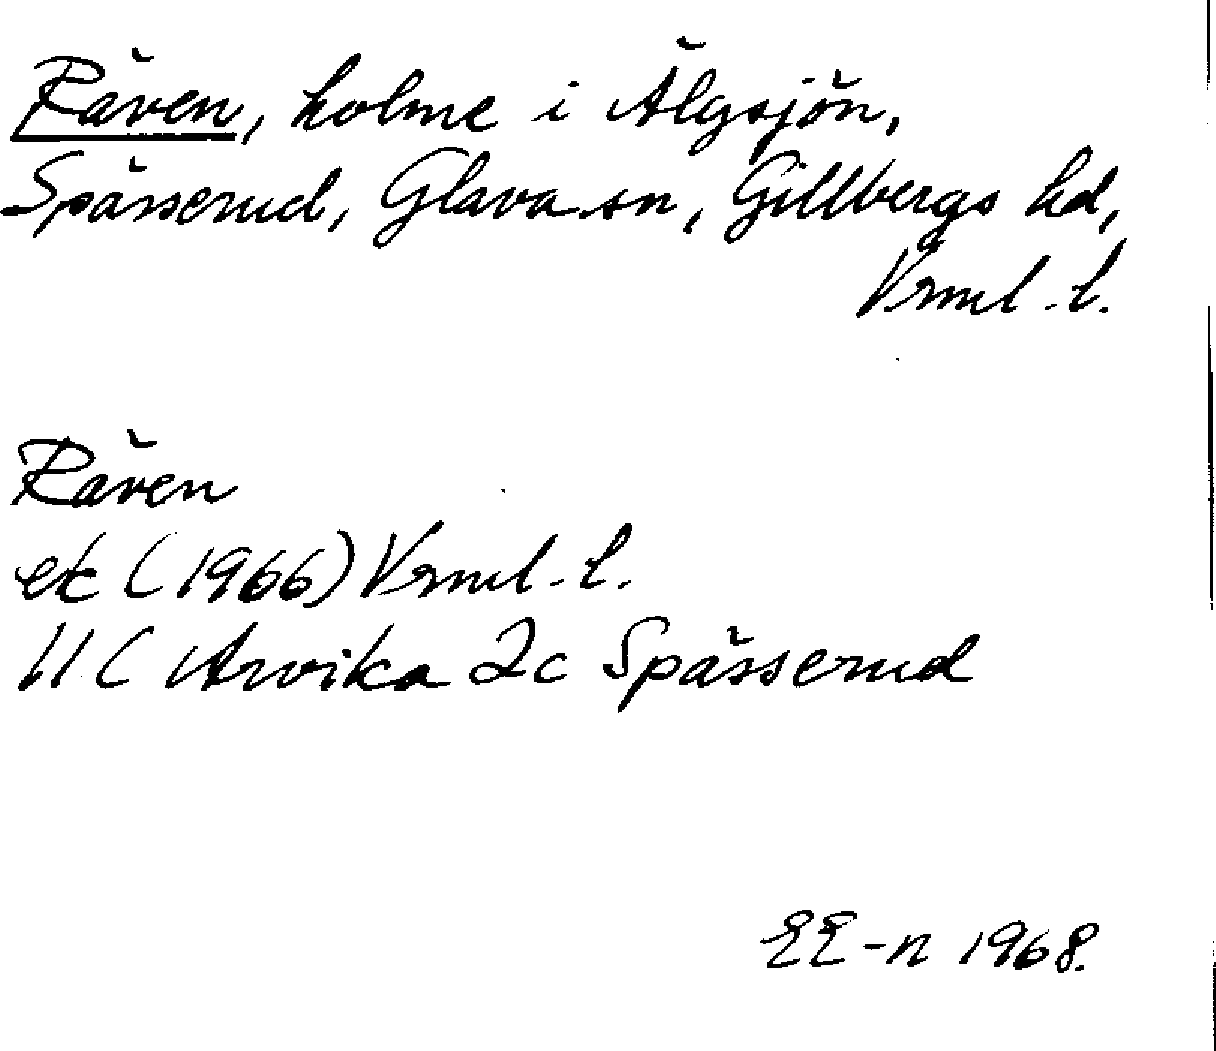 Räven, holme i Älgsjön,
Spässerud, Glava sn, Gillbergs hd,
Vrml. l.
Räven
ek (1966) Vrml. l.
11 C Arvika 2c Spässerud
EE-n 1968.